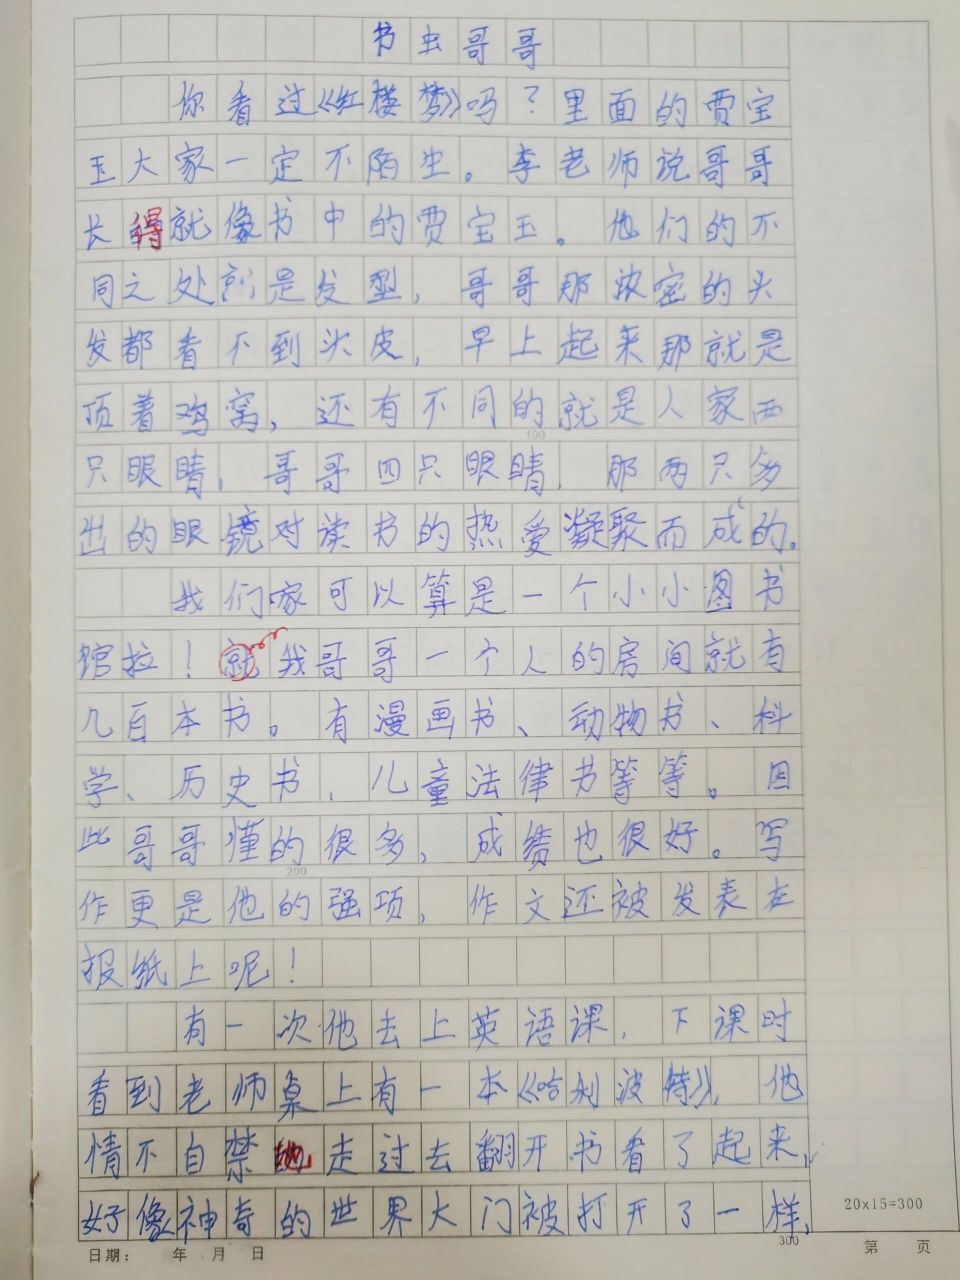 书虫哥哥
你看过《红楼梦》吗?里面的贾宝
玉大家一定不陌生。李老师说哥哥
长得就像书中的贾宝玉。他们的不
同之处就是发型,哥哥那浓密的头
发都看不到头皮,早上起来那就是
顶着鸡窝,还有不同的就是人家两
100
只眼睛,哥哥四只眼睛,那两只多
出的眼镜对读书的热爱凝聚而成的。
我们家可以算是一个小小图书
馆拉!就我哥哥一个人的房间就有
几百本书。有漫画书、动物书、科
学、历史书、儿童法律书等等。因
此哥哥懂的很多,成绩也很好。写
200
作更是他的强项,作文还被发表在
报纸上呢!
有一次他去上英语课,下课时
看到老师桌上有一本《哈利波特》,他
情不自禁地走过去翻开书看了起来,
好像神奇的世界大门被打开了一样,
20x15=300
300
日期: 年 月 日
第 页